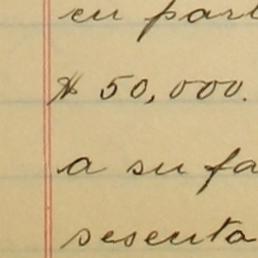 en part
$ 50,000.
a su fa
sesenta